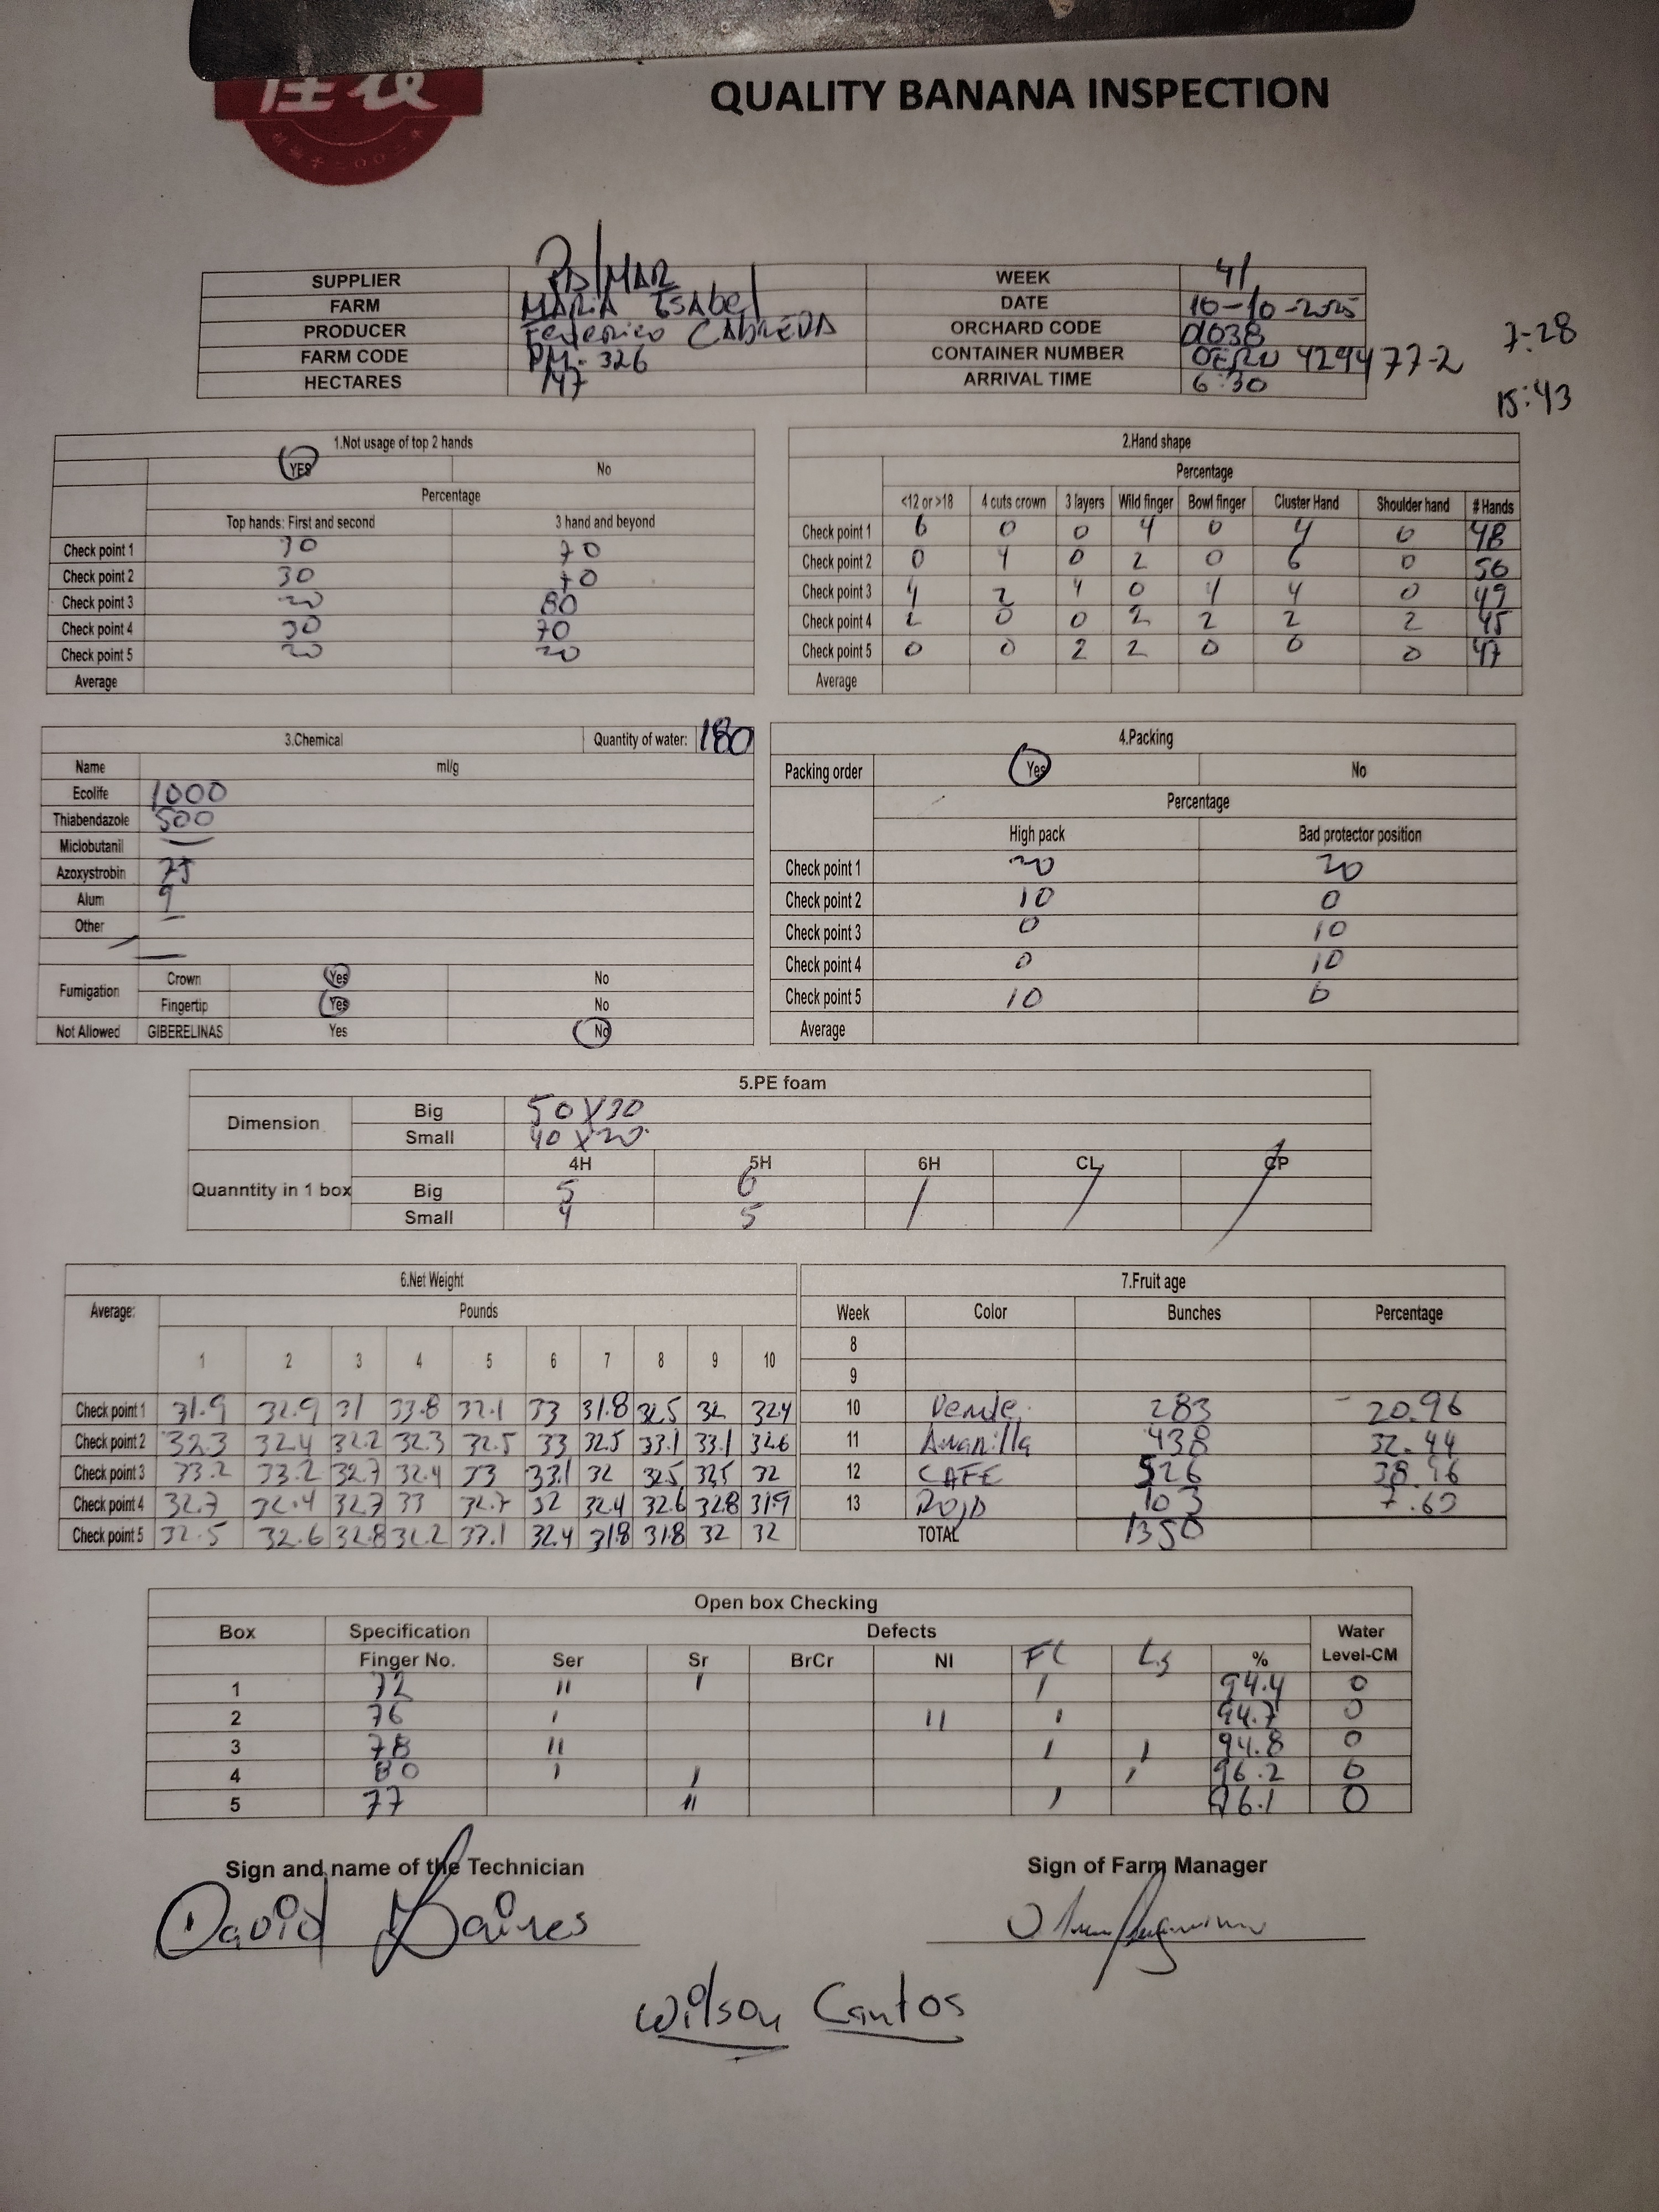 QUALITY BANANA INSPECTION
SUPPLIER PALMAR WEEK 41
FARM MARIA ISAbel DATE 10-10-2025
PRODUCER Federico CABREDA ORCHARD CODE 01038
FARM CODE PM-326 CONTAINER NUMBER OERU 429477-2 7:28
HECTARES 147 ARRIVAL TIME 6:30
15:43
1.Not usage of top 2 hands
YES No
Percentage
Top hands: First and second 3 hand and beyond
Check point 1 30 70
Check point 2 30 70
Check point 3 20 80
Check point 4 30 70
Check point 5 20 20
Average
2.Hand shape
Percentage
<12 or >18 4 cuts crown 3 layers Wild finger Bowl finger Cluster Hand Shoulder hand # Hands
Check point 1 6 0 0 4 0 4 0 48
Check point 2 0 4 0 2 0 6 0 50
Check point 3 4 2 4 0 4 4 0 49
Check point 4 2 0 0 2 2 2 2 45
Check point 5 0 0 2 2 0 0 0 47
Average
3.Chemical Quantity of water: 180
Name ml/g
Ecolife 1000
Thiabendazole 500
Miclobutanil —
Azoxystrobin 75
Alum 9
Other —
Fumigation Crown Yes No
Fingertip Yes No
Not Allowed GIBERELINAS Yes No
4.Packing
Packing order Yes No
Percentage
High pack Bad protector position
Check point 1 20 20
Check point 2 10 0
Check point 3 0 10
Check point 4 0 10
Check point 5 10 0
Average
5.PE foam
Dimension Big 50 X 30
Small 40 X 20
4H 5H 6H CL CP
Quanntity in 1 box Big 5 6 /
Small 4 5
6.Net Weight
Average: Pounds
1 2 3 4 5 6 7 8 9 10
Check point 1 31.9 32.9 31 33.8 32.1 33 31.8 32.5 32 32.4
Check point 2 32.3 32.4 32.2 32.3 32.5 33 32.5 33.1 33.1 32.6
Check point 3 33.2 33.2 32.7 32.4 33 33.1 32 32.5 32.5 32
Check point 4 32.7 32.4 32.7 33 32.7 32 32.4 32.6 32.8 31.9
Check point 5 32.5 32.6 32.8 32.2 33.1 32.4 31.8 31.8 32 32
7.Fruit age
Week Color Bunches Percentage
8
9
10 Verde 283 20.96
11 Amarilla 438 32.44
12 CAFE 526 38.96
13 ROJO 103 7.63
TOTAL 1350
Open box Checking
Box Specification Defects Water
Finger No. Ser Sr BrCr NI FL Ls % Level-CM
1 72 11 1 1 94.4 0
2 76 1 11 1 94.7 0
3 78 11 1 1 94.8 0
4 80 1 1 1 96.2 0
5 77 11 1 96.1 0
Sign and name of the Technician Sign of Farm Manager
David Gaines
Wilson Cantos